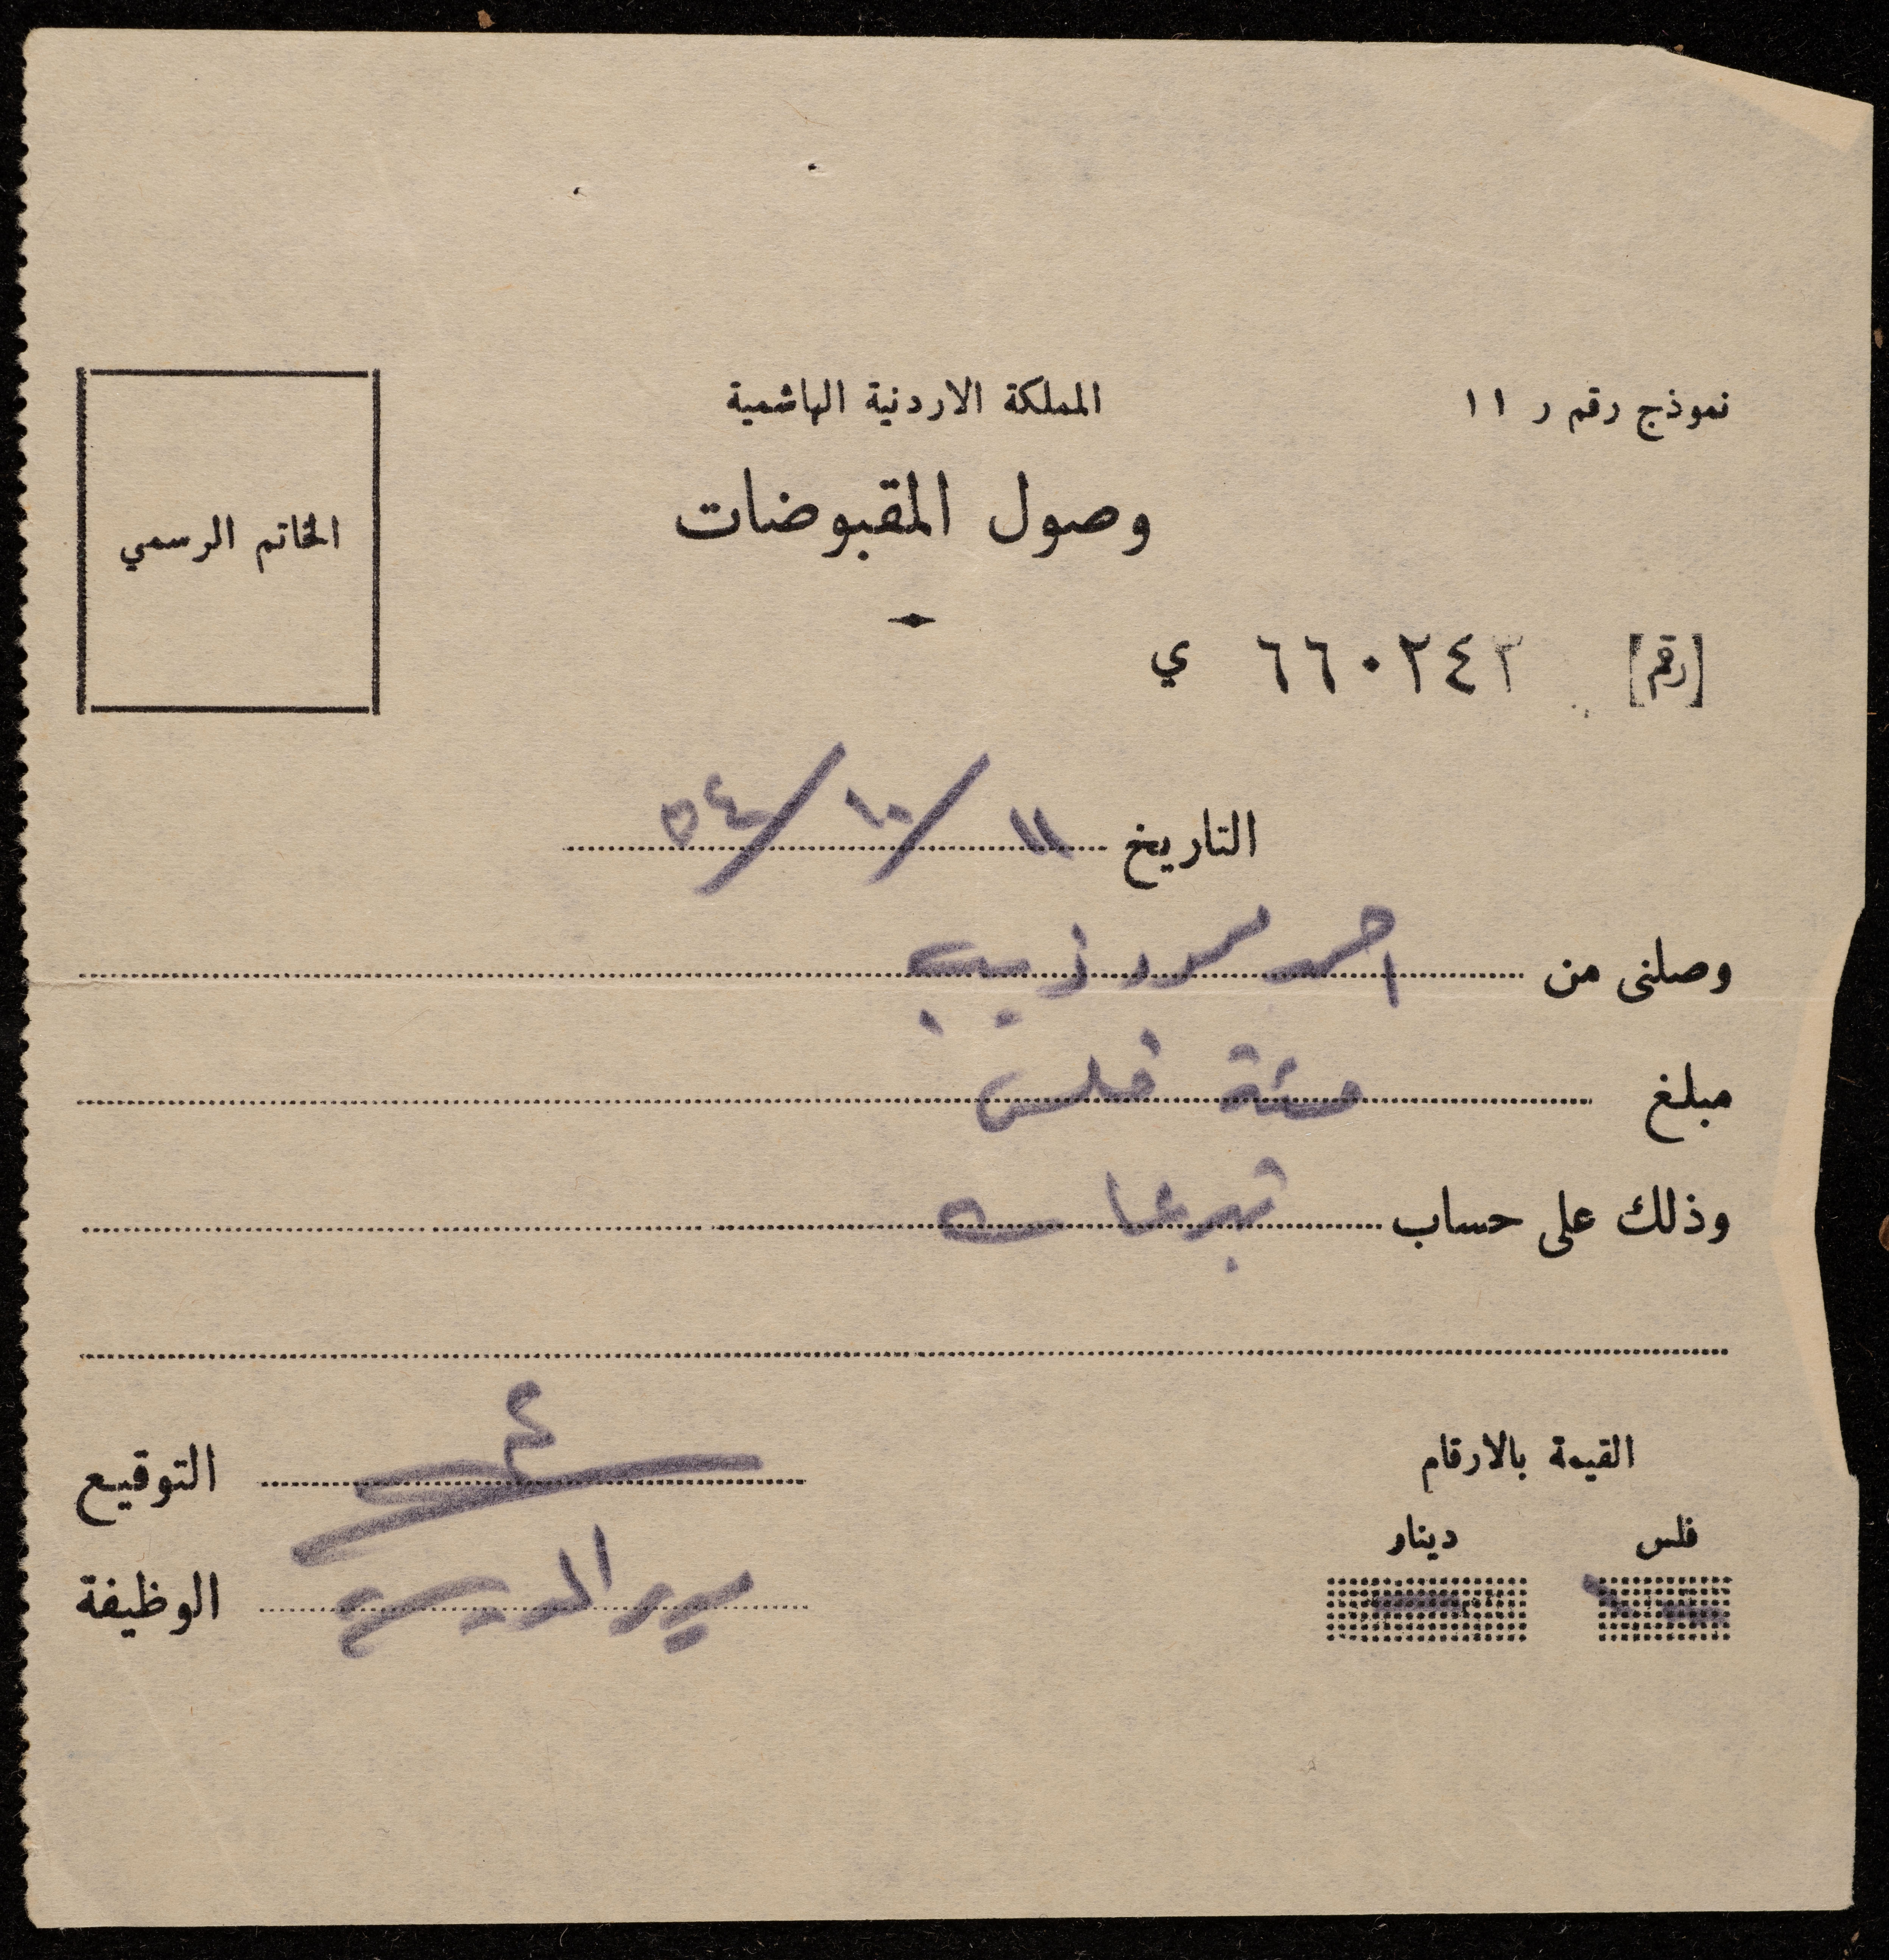 نموذج رقم ر ١١
المملكة الاردنية الهاشمية
وصول المقبوضات
الخاتم الرسمي
[رقم] ٦٦٠٢٤٢ ي
التاريخ ١١/١٠/٥٤
وصلنى من احمد ذيب
مبلغ مئة فلس
وذلك على حساب تبرعات
القيمة بالارقام
فلس دينار
١٠٠ -
التوقيع
الوظيفة مدير المدرسة